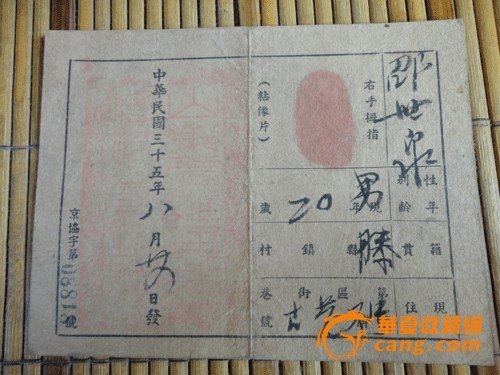 邵世
右手拇指
(粘像片)
性別 男
年齡 現年20歲
籍貫 滕縣 鎮 村
現住 第 區 街 巷 號
中華民國三十五年八月 日發
京協字第08818號
華夏收藏網
cang.com